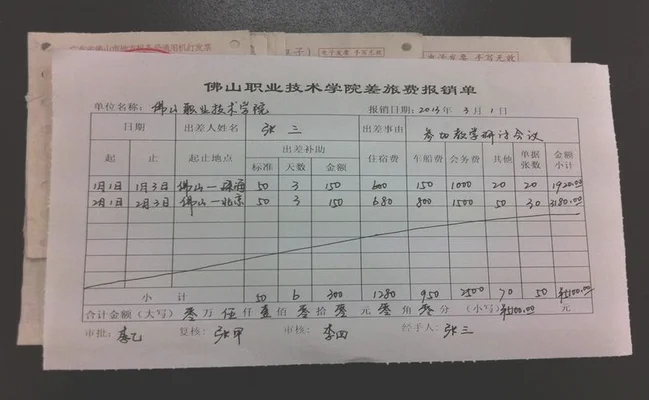 电子发票 手写无效
电子发票 手写无效
佛山职业技术学院差旅费报销单
单位名称：佛山职业技术学院 报销日期：2013年 3月 1日
日期 出差人姓名 张三 出差事由 参加教学研讨会议
起 止 起止地点 出差补助 住宿费 车船费 会务费 其他 单据张数 金额小计
标准 天数 金额
1月1日 1月3日 佛山—珠海 50 3 150 600 150 1000 20 20 1920.00
2月1日 2月3日 佛山—北京 50 3 150 680 800 1500 50 30 3180.00
小计 50 6 300 1280 950 2500 70 50 ¥5100.00
合计金额（大写）零万伍仟壹佰零拾零元零角零分（小写）¥5100.00 元
审批：李乙 复核：张甲 审核：李四 经手人：张三